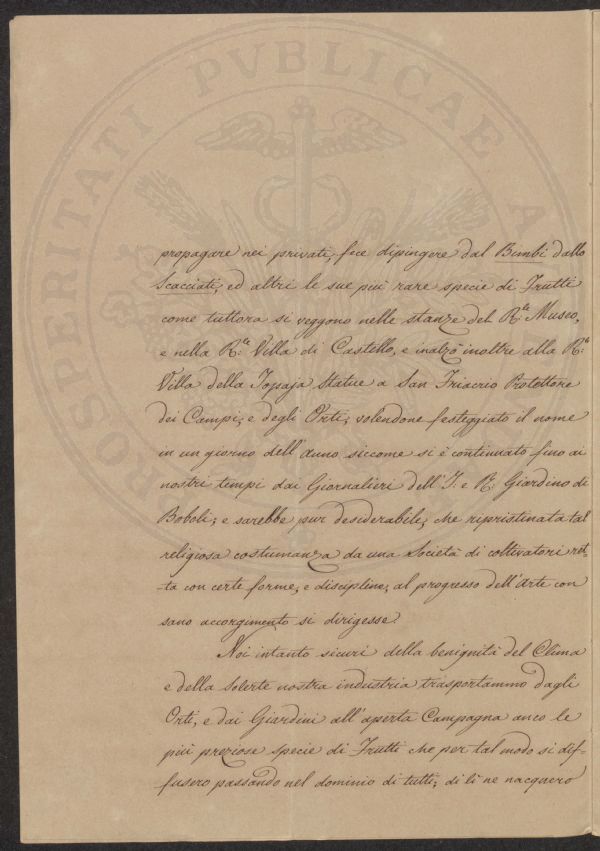 PROSPERITATI PVBLICAE A
propagare nei privati, fece dipingere dal Bimbi dallo
Scacciati, ed altri le sue più rare specie di Frutti
come tuttora si veggono nelle stanze del R:le Museo,
e nella R:le Villa di Castello, e inalzò inoltre alla R:le
Villa della Topaja Statue a San Friacrio Protettore
dei Campi, e degli Orti, volendone festeggiato il nome
in un giorno dell'anno siccome si è continuato fino ai
nostri tempi dai Giornalieri dell'I: e R: Giardino di
Boboli; e sarebbe pur desiderabile, che ripristinata tal
religiosa costumanza da una Società di coltivatori ret-
-ta con certe forme, e discipline, al progresso dell'Arte con
sano accorgimento si dirigesse.
Noi intanto sicuri della benignità del Clima
e della solerte nostra industria trasportammo dagli
Orti, e dai Giardini all'aperta Campagna anco le
più preziose specie di Frutti che per tal modo si dif-
fusero passando nel dominio di tutti; di lì ne nacquero